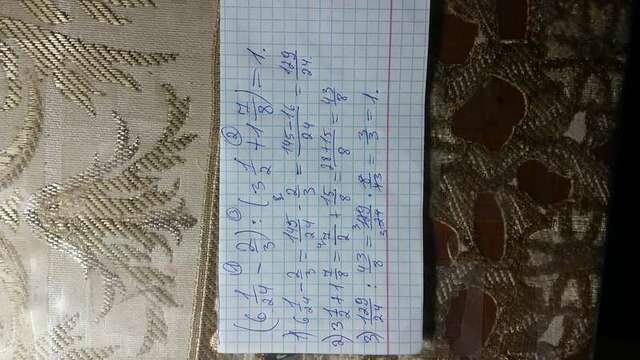 (6 1/24 - 2/3) : (3 1/2 + 1 7/8) = 1.
1) 6 1/24 - 2/3 = 145/24 - 2/3 = 145-16/24 = 129/24
2) 3 1/2 + 1 7/8 = 7/2 + 15/8 = 28+15/8 = 43/8
3) 129/24 : 43/8 = 129/24 · 8/43 = 3/3 = 1.